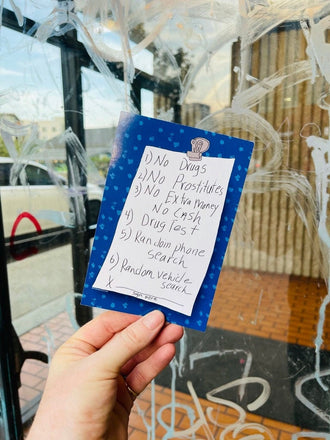 1) No Drugs
2) No Prostitutes
3) No Extra Money
No Cash
4) Drug Test
5) Random phone
search
6) Random vehicle
search
X